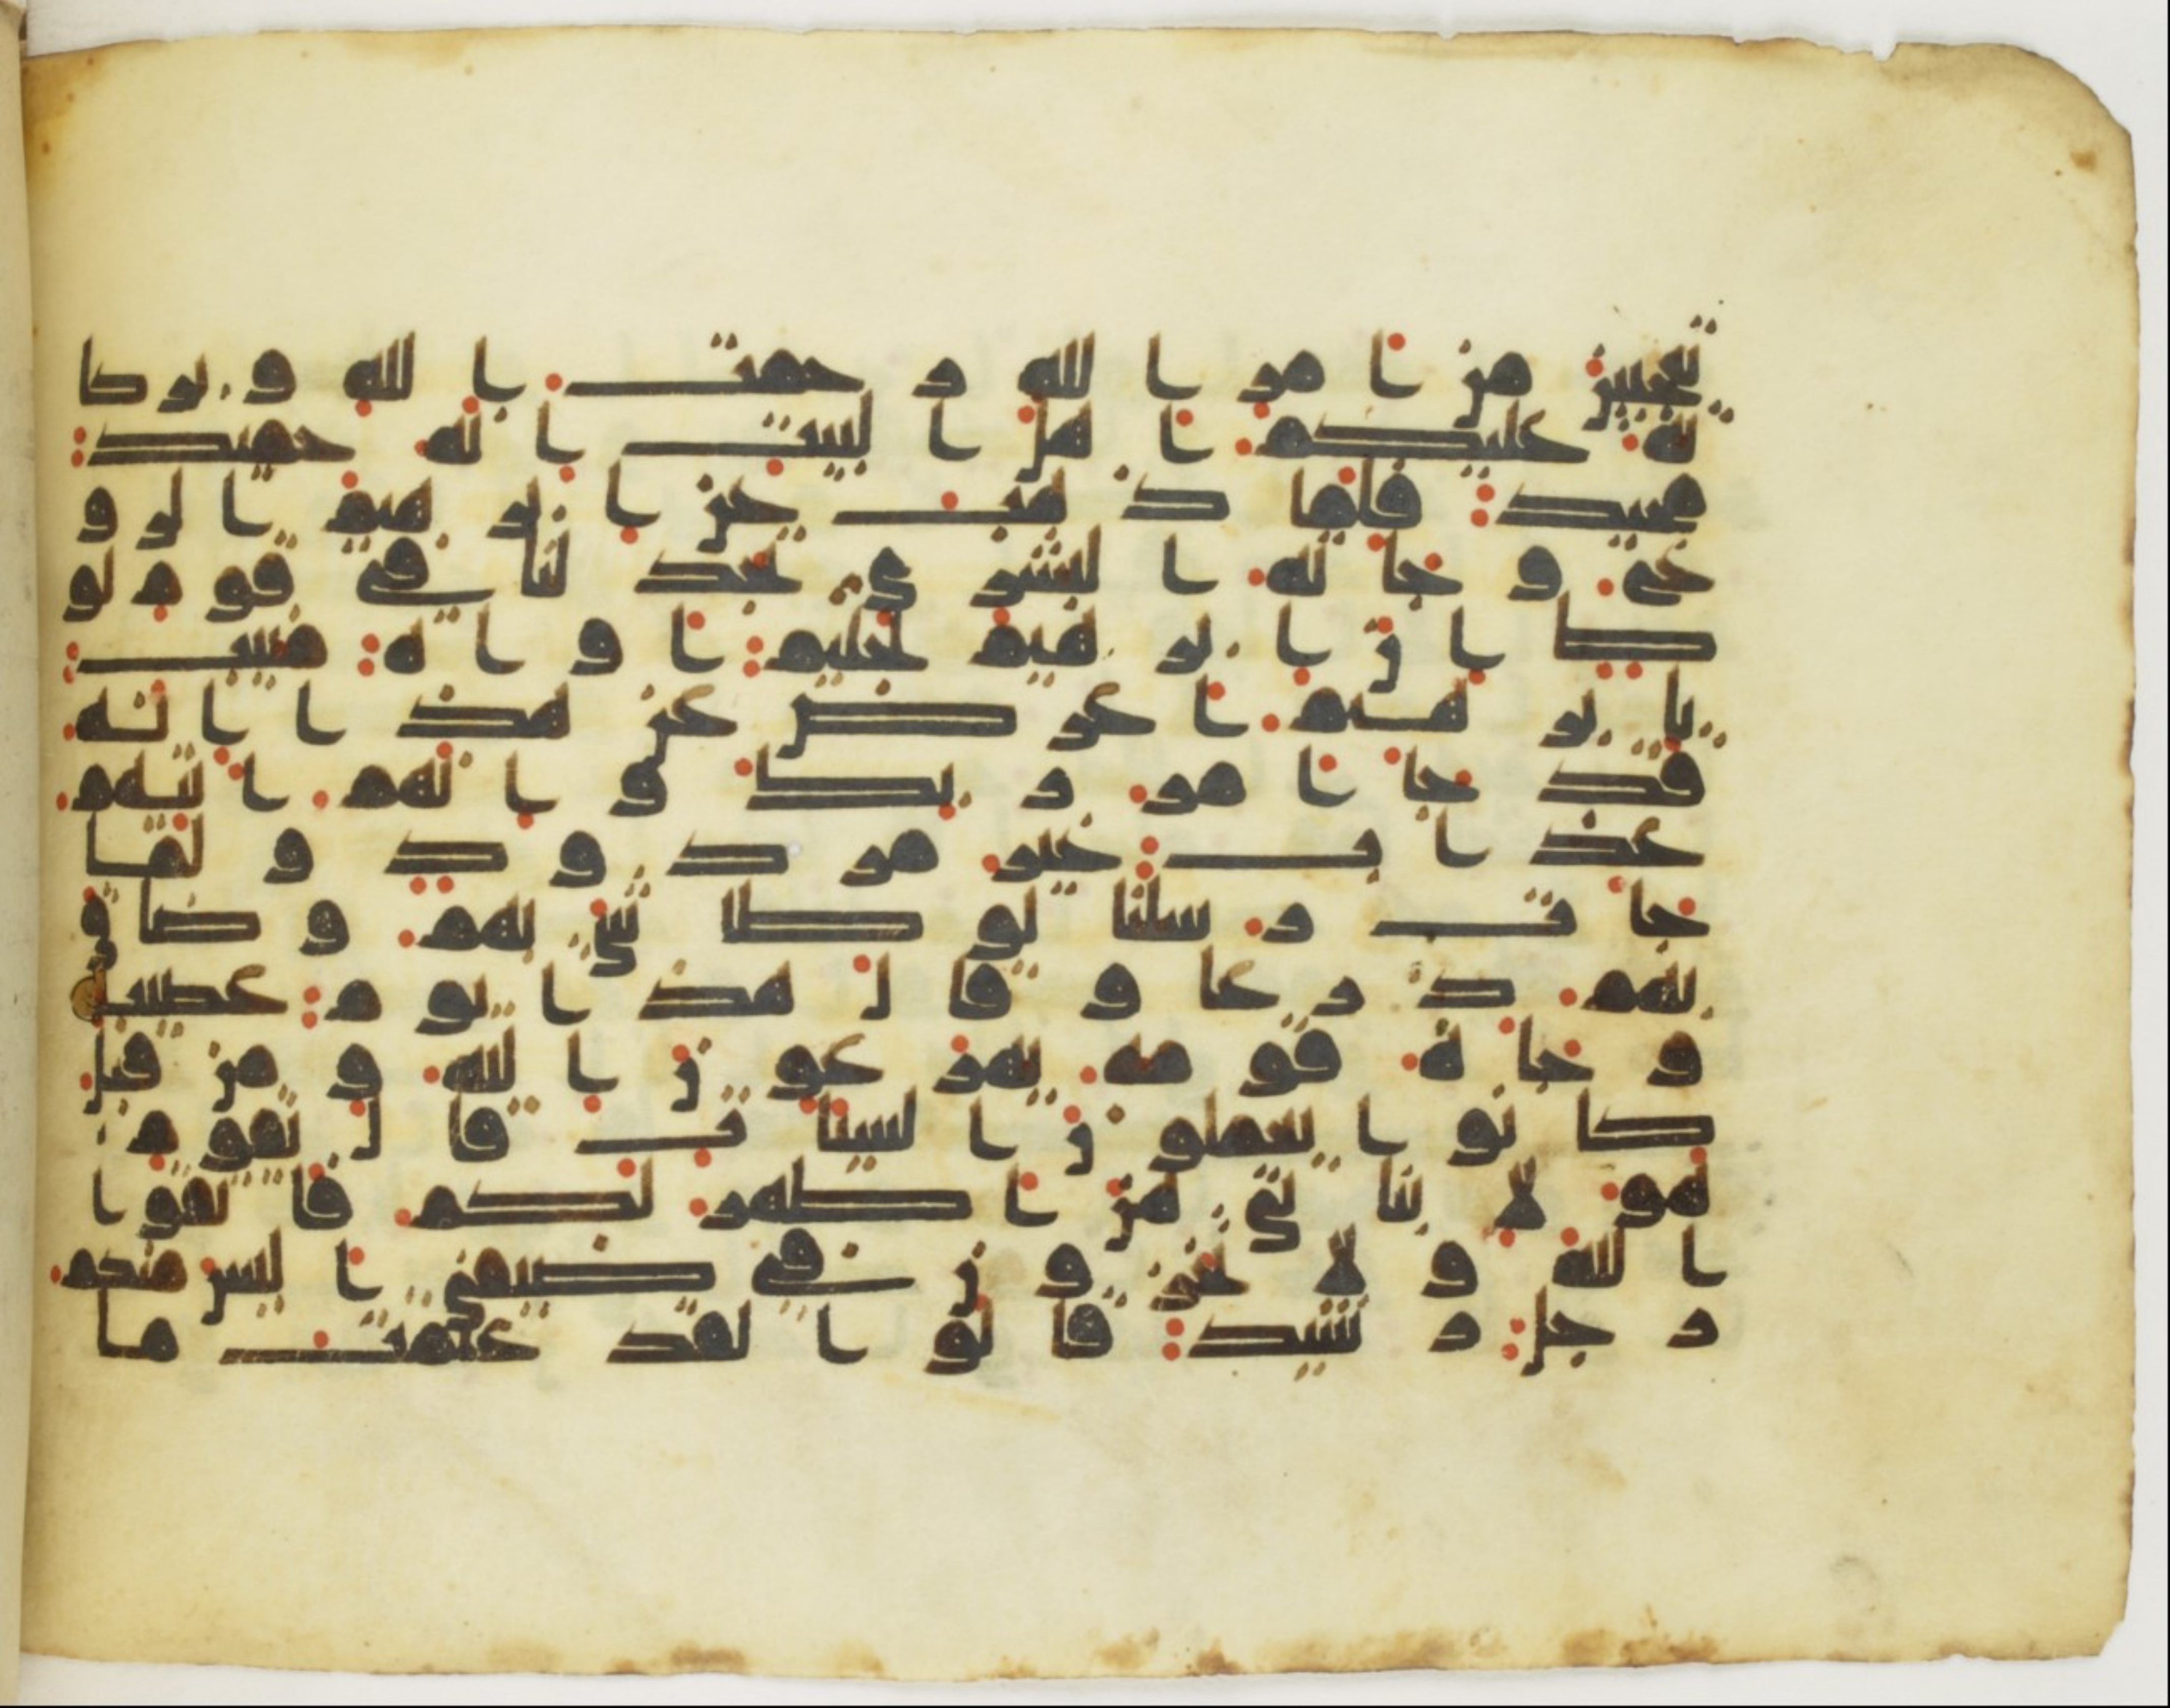 تعجبين من ا مر ا لله ر حمت ا لله و بر كا
ته عليكم ا هل ا لبيت ا نه حميد
مجيد فلما ذ هب عن ا بر هيم ا لر و
ع و جا ته ا لبشر ى يجد لنا في قو م لو
ط ا ن ا بر هيم لحليم ا و ا ه منيب
يا بر هيم ا عر ض عن هذ ا ا نه
قد جا ا مر ر بك و ا نهم ا تيهم
عذ ا ب غير مر د و د و لما
جا ت ر سلنا لو طا سى بهم و ضا ق
بهم ذ ر عا و قا ل هذ ا يو م عصيب
و جا ه قو مه يهر عو ن ا ليه و من قبل
كا نو ا يعملو ن ا لسيا ت قا ل يقو م
هو لا بنا تي هن ا طهر لكم فا تقو ا
ا لله و لا تخز و ن في ضيفي ا ليس منكم
ر جل ر شيد قا لو ا لقد علمت ما